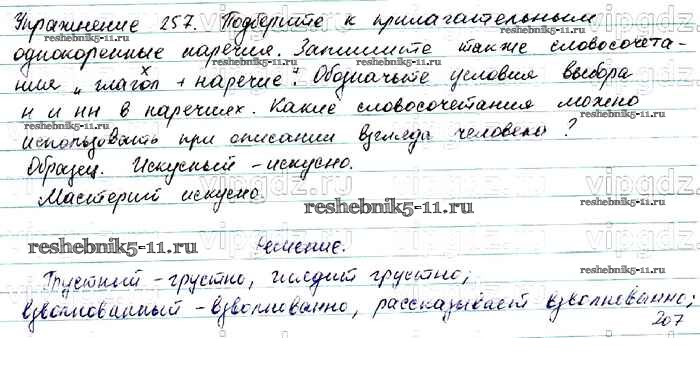 Упражнение 257. Подберите к прилагательным
однокоренные наречия. Запишите также словосочета-
ния „ глагол + наречие". Обозначьте условия выбора
н и нн в наречиях. Какие словосочетания можно
использовать при описании взгляда человека?
Образец. Искусный - искусно.
Мастерит искусно.
reshebnik5-11.ru
reshebnik5-11.ru
Решение.
Грустный - грустно, глядит грустно;
взволнованный - взволнованно, рассказывает взволнованно;
207